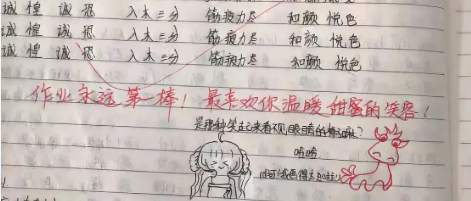 诚惶 诚恐 入木三分 筋疲力尽 和颜 悦色
诚惶 诚恐 入木三分 筋疲力尽 和颜 悦色
诚惶 诚恐 入木三分 筋疲力尽 和颜 悦色
作业永远第一棒！最喜欢你温暖甜蜜的笑容！
是那种笑起来看不见眼睛的那种？
哈哈